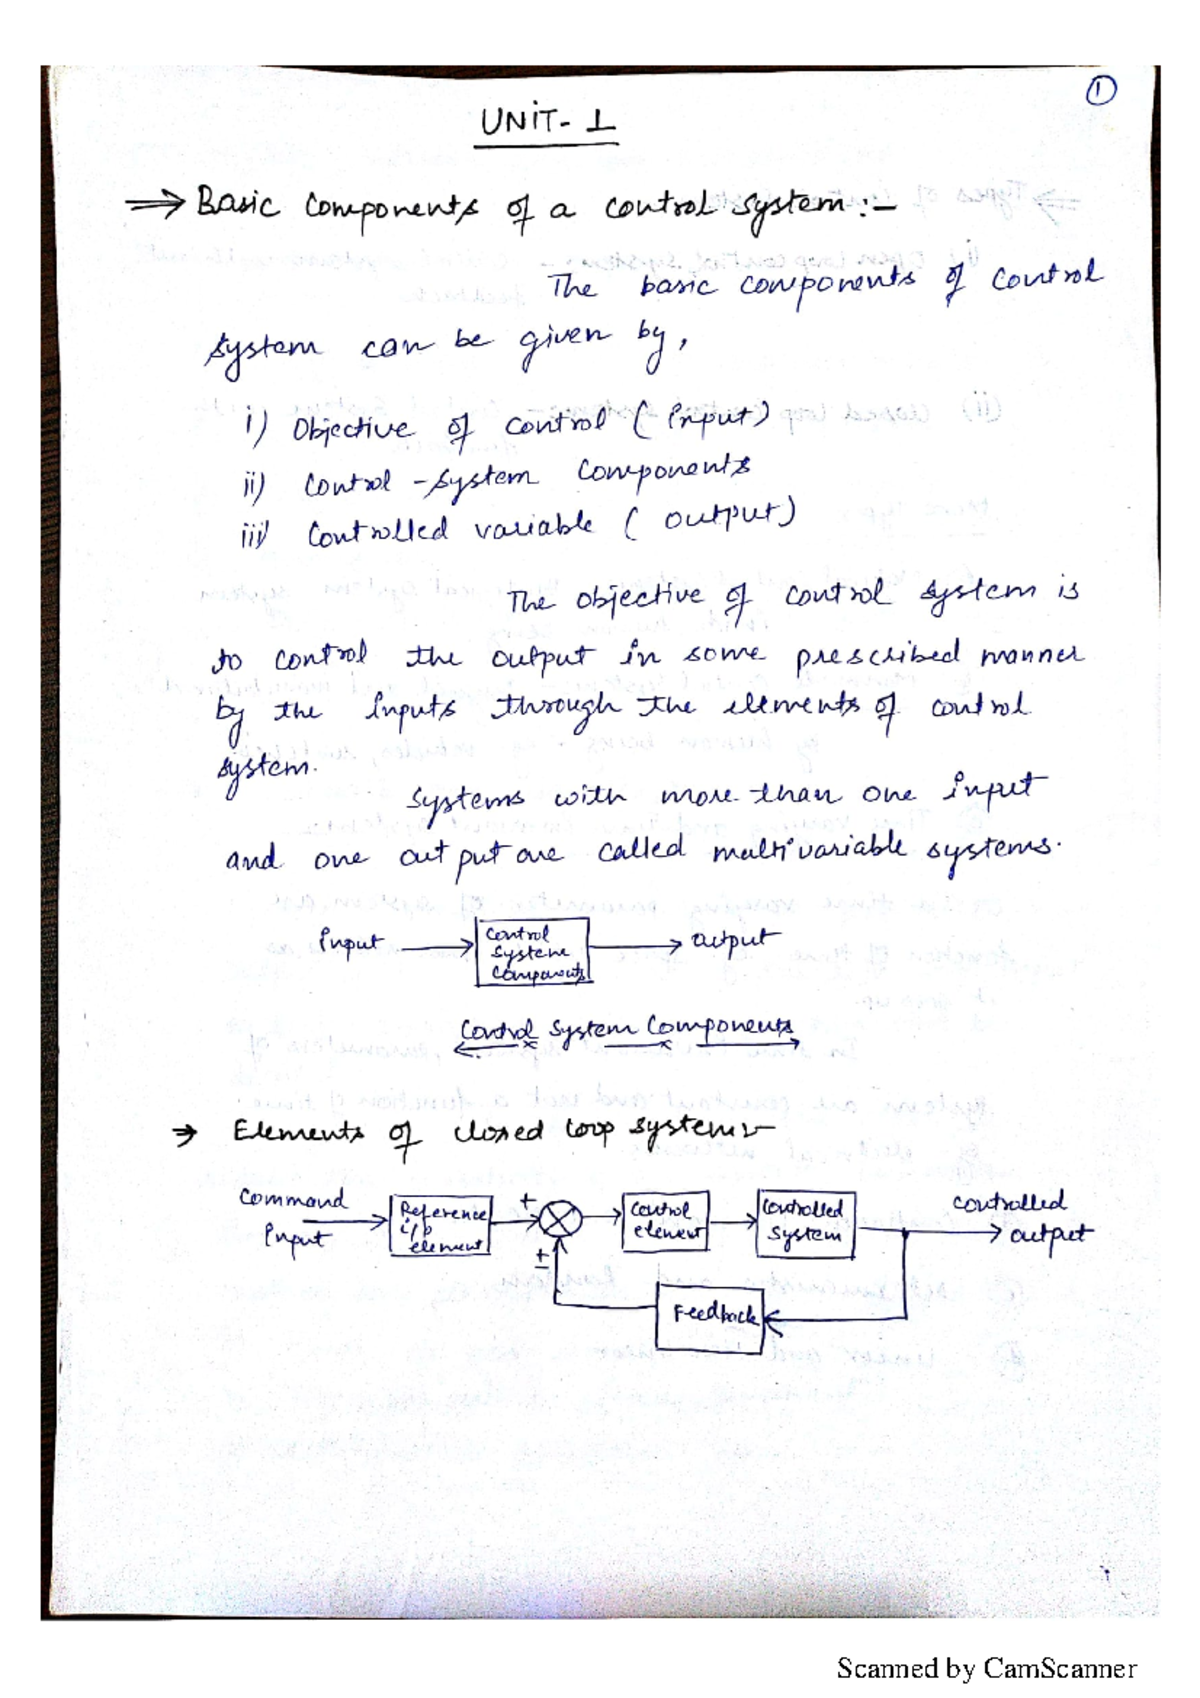 1
UNIT- 1
⇒ Basic components of a control system:-
The basic components of control
system can be given by,
i) Objective of control (input)
ii) Control -system components
iii) Controlled variable (output)
The objective of control system is
to control the output in some prescribed manner
by the inputs through the elements of control
system.
Systems with more than one input
and one output are called multivariable systems.
Input → Control System Components → output
Control System Components
→ Elements of closed loop system:-
Command Input → Reference i/p element → + ± → Control element → Controlled System → controlled output
Feedback
Scanned by CamScanner